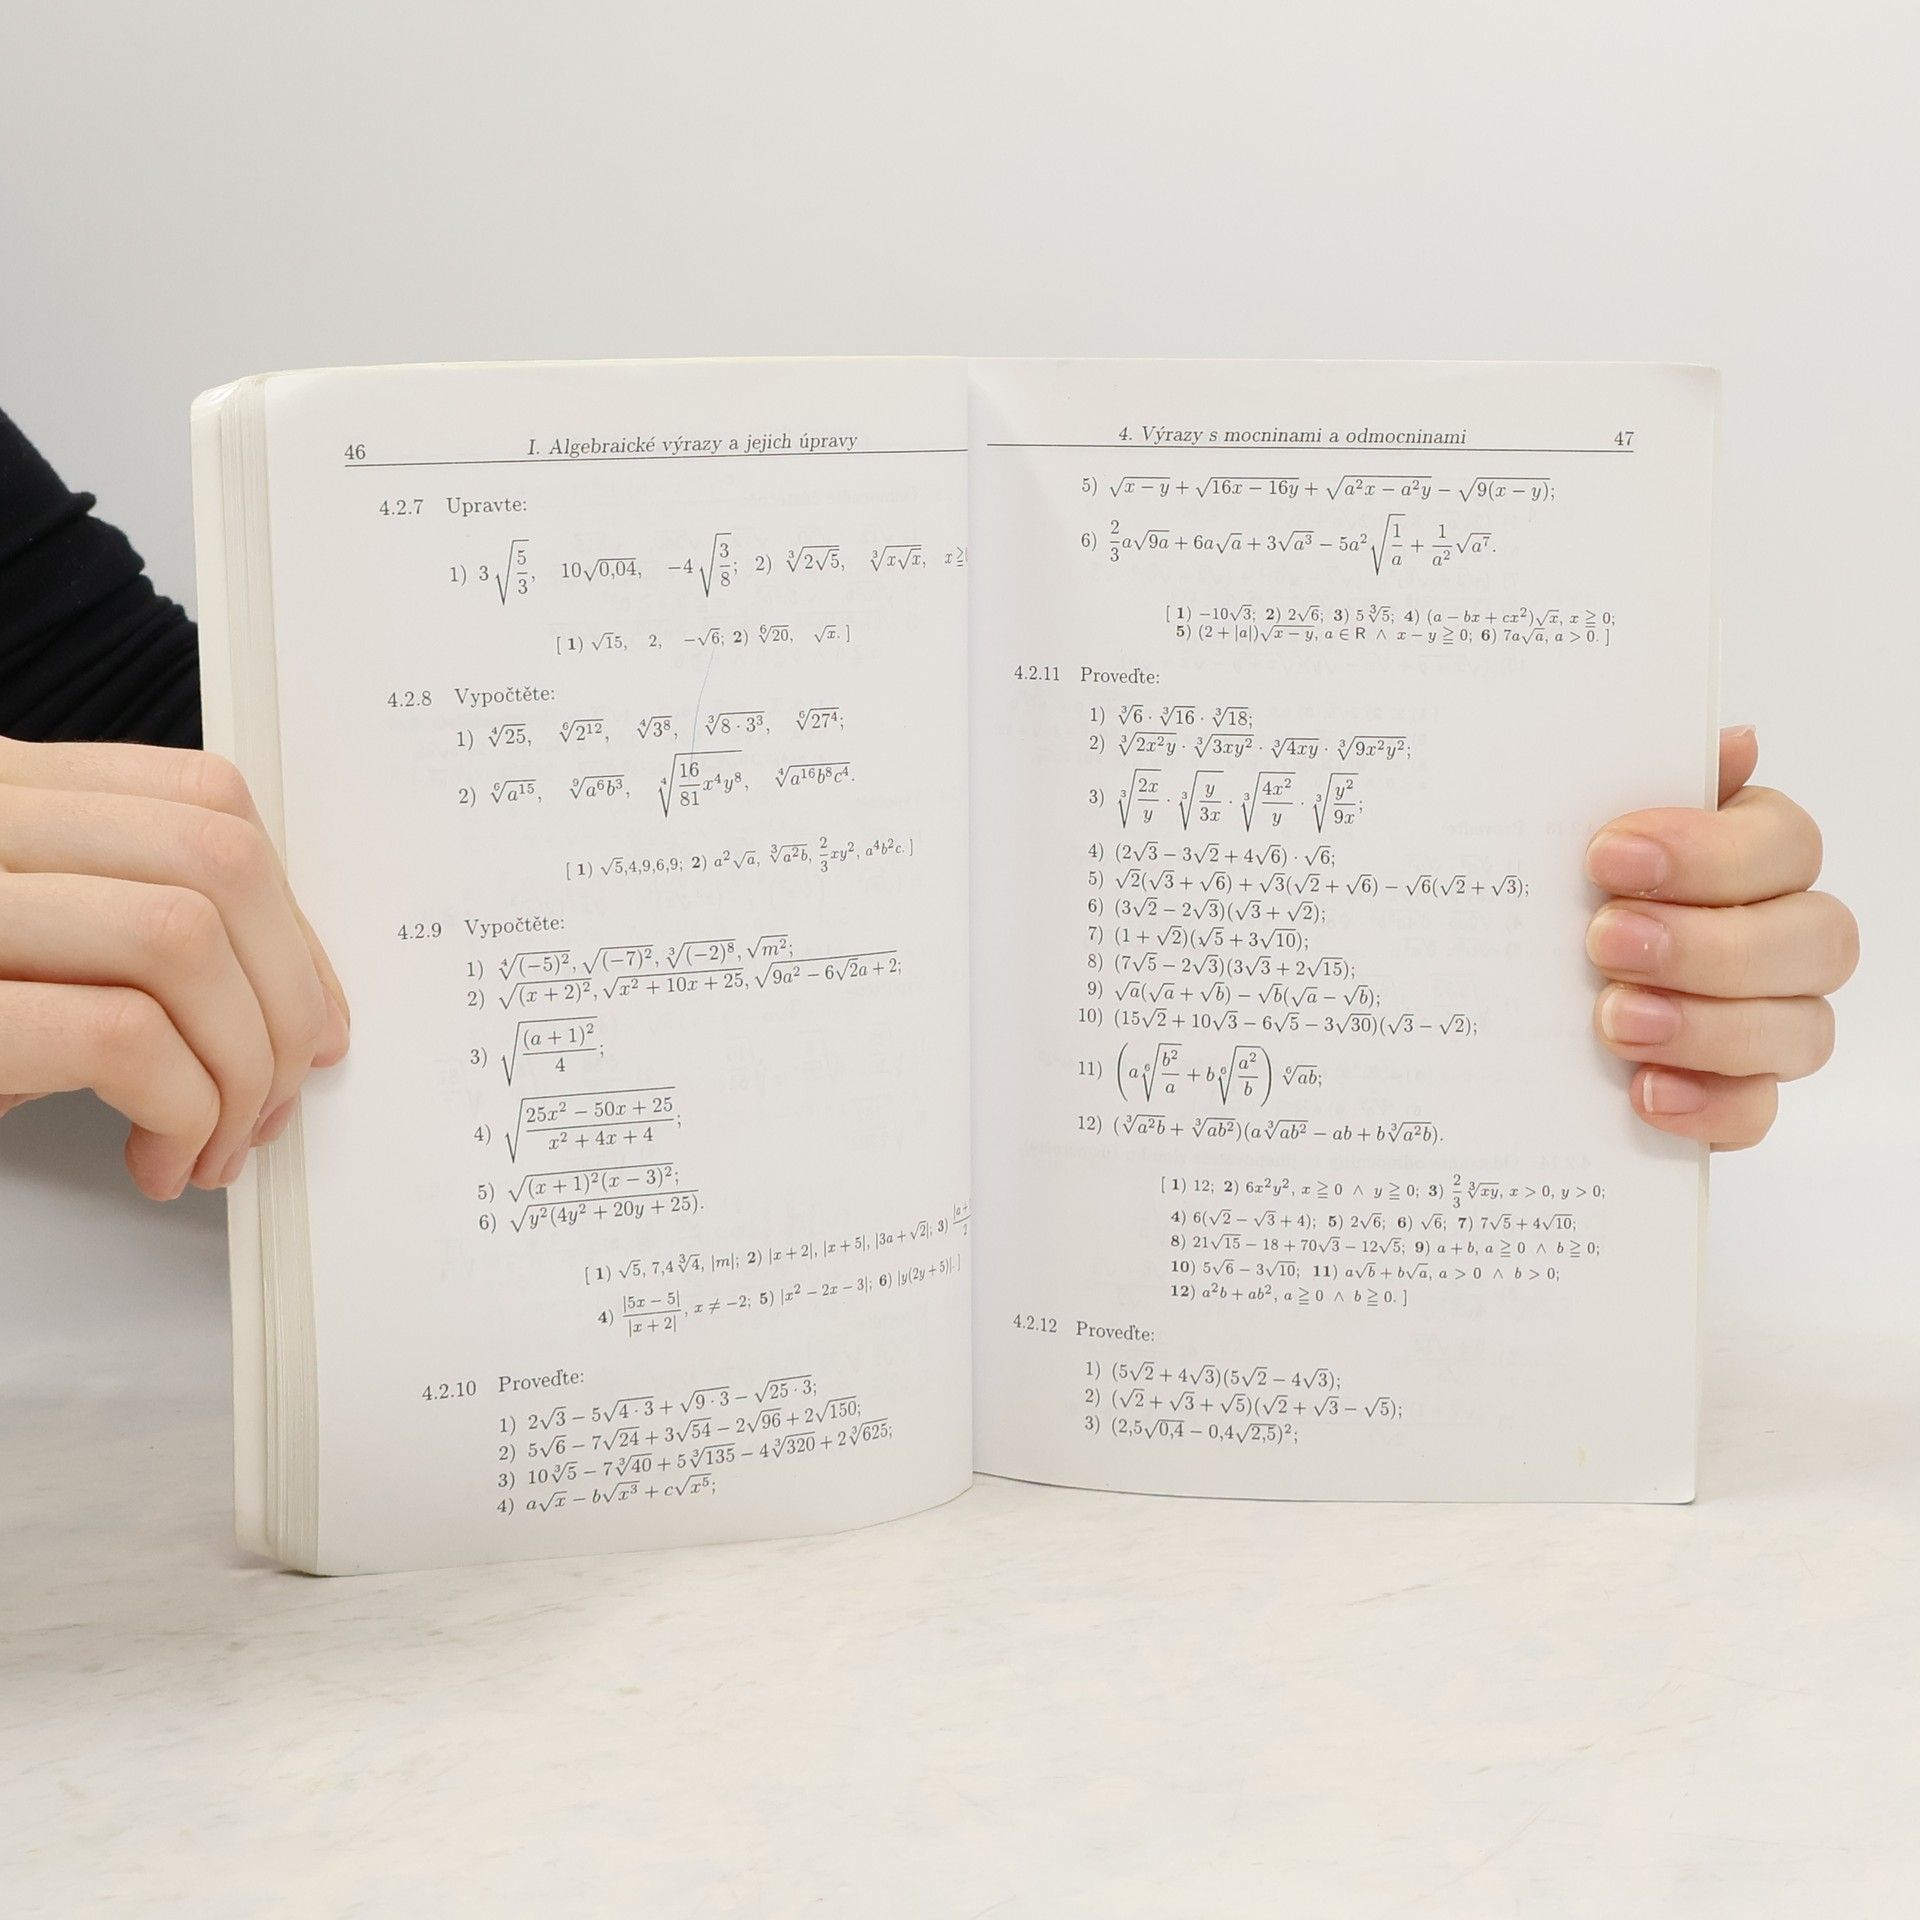 46 I. Algebraické výrazy a jejich úpravy
4.2.7 Upravte:
1) 3√(5/3), 10√0,04, −4√(3/8); 2) ∛(2√5), ∛(x√x), x ≧
[ 1) √15, 2, −√6; 2) ⁶√20, √x. ]
4.2.8 Vypočtěte:
1) ⁴√25, ⁶√2¹², ⁴√3⁸, ∛(8 · 3³), ⁶√27⁴;
2) ⁶√a¹⁵, ⁹√(a⁶b³), ⁴√((16/81)x⁴y⁸), ⁴√(a¹⁶b⁸c⁴).
[ 1) √5,4,9,6,9; 2) a²√a, ∛(a²b), (2/3)xy², a⁴b²c. ]
4.2.9 Vypočtěte:
1) ⁴√(−5)², √(−7)², ∛(−2)⁸, √m²;
2) √(x + 2)², √(x² + 10x + 25), √(9a² − 6√2a + 2);
3) √((a + 1)²/4);
4) √((25x² − 50x + 25)/(x² + 4x + 4));
5) √((x + 1)²(x − 3)²);
6) √(y²(4y² + 20y + 25)).
[ 1) √5, 7,4∛4, |m|; 2) |x + 2|, |x + 5|, |3a + √2|; 3) |a+ /2
4) |5x − 5|/|x + 2|, x ≠ −2; 5) |x² − 2x − 3|; 6) |y(2y + 5)|. ]
4.2.10 Proveďte:
1) 2√3 − 5√(4 · 3) + √(9 · 3) − √(25 · 3);
2) 5√6 − 7√24 + 3√54 − 2√96 + 2√150;
3) 10∛5 − 7∛40 + 5∛135 − 4∛320 + 2∛625;
4) a√x − b√x³ + c√x⁵;
4. Výrazy s mocninami a odmocninami 47
5) √(x − y) + √(16x − 16y) + √(a²x − a²y) − √(9(x − y));
6) (2/3)a√(9a) + 6a√a + 3√a³ − 5a²√(1/a) + (1/a²)√a⁷.
[ 1) −10√3; 2) 2√6; 3) 5∛5; 4) (a − bx + cx²)√x, x ≧ 0;
5) (2 + |a|)√(x − y), a ∈ R ∧ x − y ≧ 0; 6) 7a√a, a > 0. ]
4.2.11 Proveďte:
1) ∛6 · ∛16 · ∛18;
2) ∛(2x²y) · ∛(3xy²) · ∛(4xy) · ∛(9x²y²);
3) ∛(2x/y) · ∛(y/3x) · ∛(4x²/y) · ∛(y²/9x);
4) (2√3 − 3√2 + 4√6) · √6;
5) √2(√3 + √6) + √3(√2 + √6) − √6(√2 + √3);
6) (3√2 − 2√3)(√3 + √2);
7) (1 + √2)(√5 + 3√10);
8) (7√5 − 2√3)(3√3 + 2√15);
9) √a(√a + √b) − √b(√a − √b);
10) (15√2 + 10√3 − 6√5 − 3√30)(√3 − √2);
11) (a⁶√(b²/a) + b⁶√(a²/b)) ⁶√(ab);
12) (∛(a²b) + ∛(ab²))(a∛(ab²) − ab + b∛(a²b)).
[ 1) 12; 2) 6x²y², x ≧ 0 ∧ y ≧ 0; 3) (2/3)∛(xy), x > 0, y > 0;
4) 6(√2 − √3 + 4); 5) 2√6; 6) √6; 7) 7√5 + 4√10;
8) 21√15 − 18 + 70√3 − 12√5; 9) a + b, a ≧ 0 ∧ b ≧ 0;
10) 5√6 − 3√10; 11) a√b + b√a, a > 0 ∧ b > 0;
12) a²b + ab², a ≧ 0 ∧ b ≧ 0. ]
4.2.12 Proveďte:
1) (5√2 + 4√3)(5√2 − 4√3);
2) (√2 + √3 + √5)(√2 + √3 − √5);
3) (2,5√0,4 − 0,4√2,5)²;